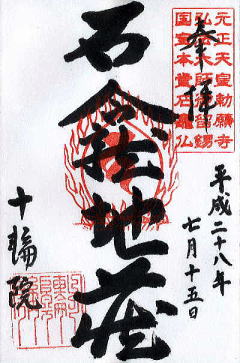 奉拝
元正天皇勅願寺
弘法大師御留錫
国宝本堂石龕仏
平成二十八年
七月十五日
石龕地蔵
十輪院